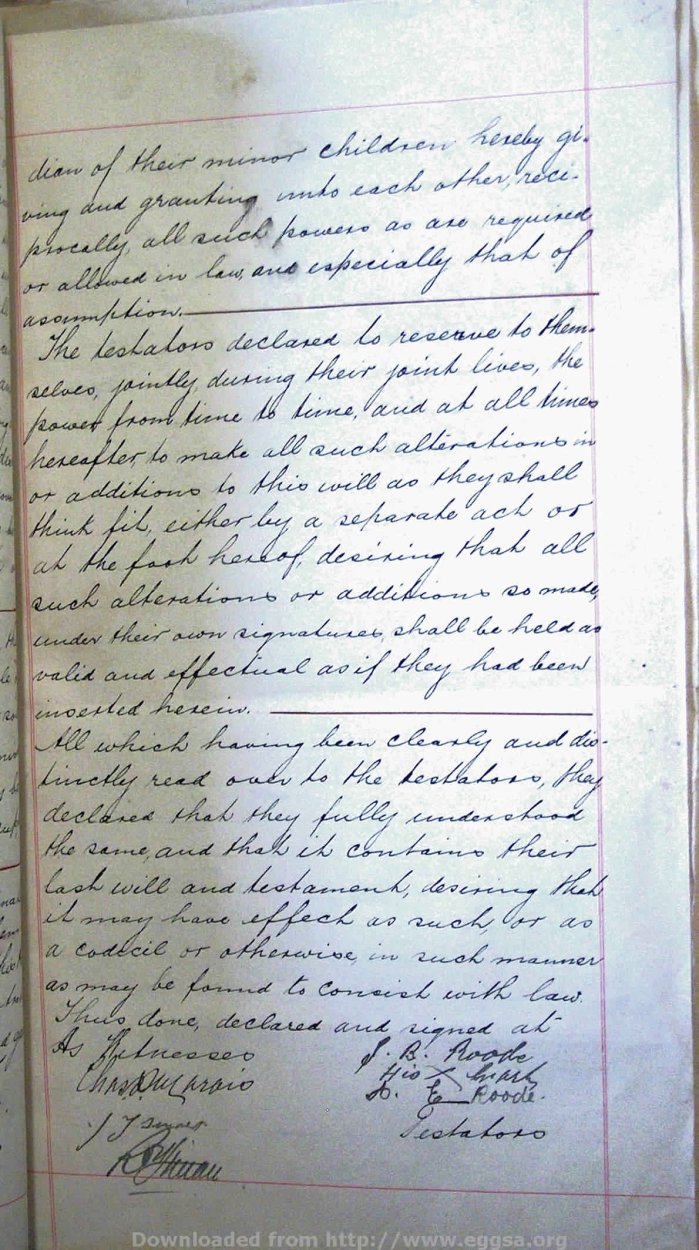 dian of their minor children hereby gi-
ving and granting unto each other, reci-
procally, all such powers as are required
or allowed in law, and especially that of
assumption.
The testators declared to reserve to them-
selves, jointly, during their joint lives, the
power from time to time, and at all times
hereafter, to make all such alterations in
or additions to this will as they shall
think fit, either by a separate act or
at the foot hereof, desiring that all
such alterations or additions so made,
under their own signatures, shall be held as
valid and effectual as if they had been
inserted herein.
All which having been clearly and dis-
tinctly read over to the testators, they
declared that they fully understood
the same, and that it contains their
last will and testament, desiring that
it may have effect as such, or as
a codicil or otherwise, in such manner
as may be found to consist with law.
Thus done, declared and signed at
As Witnesses
J. B. Roode
His X Mark
Chas Marais
E Roode.
Testators
Downloaded from http://www.eggsa.org